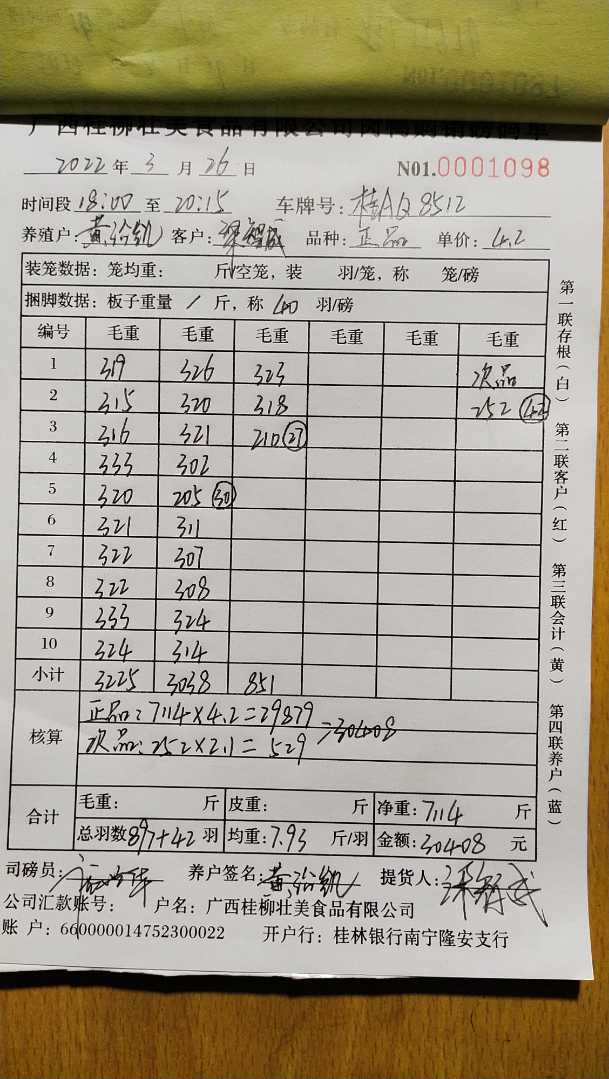 广西桂柳壮美食品有限公司肉鸭购销磅码单
2022年3月26日 N01.0001098
时间段 18:00 至 20:15 车牌号: 桂AQ8512
养殖户: 黄治凯 客户: 梁智威 品种: 正品 单价: 4.2
装笼数据: 笼均重: 斤/空笼, 装 羽/笼, 称 笼/磅
捆脚数据: 板子重量 / 斤, 称 40 羽/磅
编号 毛重 毛重 毛重 毛重 毛重 毛重
1 319 326 323 次品
2 315 320 318 252 (42)
3 316 321 210 (27)
4 333 302
5 320 205 (30)
6 321 311
7 322 307
8 322 308
9 333 324
10 324 314
小计 3225 3038 851
核算
正品: 7114×4.2=29879
次品: 252×2.1= 529
=30408
合计
毛重: 斤 皮重: 斤 净重: 7114 斤
总羽数 897+42 羽 均重: 7.93 斤/羽 金额: 30408 元
司磅员: 养户签名: 黄治凯 提货人: 梁智威
公司汇款账号: 户名: 广西桂柳壮美食品有限公司
账 户: 660000014752300022 开户行: 桂林银行南宁隆安支行
第一联存根(白) 第二联客户(红) 第三联会计(黄) 第四联养户(蓝)